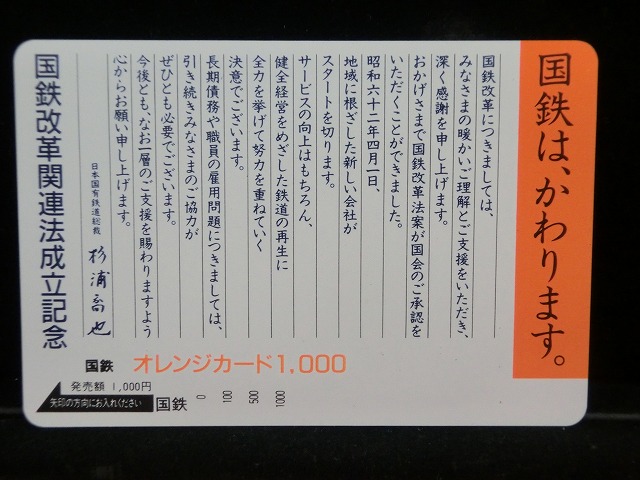 国鉄は、かわります。
国鉄改革につきましては、
みなさまの暖かいご理解とご支援をいただき、
深く感謝を申し上げます。
おかげさまで国鉄改革法案が国会のご承認を
いただくことができました。
昭和六十二年四月一日、
地域に根ざした新しい会社が
スタートを切ります。
サービスの向上はもちろん、
健全経営をめざした鉄道の再生に
全力を挙げて努力を重ねていく
決意でございます。
長期債務や職員の雇用問題につきましては、
引き続きみなさまのご協力が
ぜひとも必要でございます。
今後とも、なお一層のご支援を賜わりますよう
心からお願い申し上げます。
日本国有鉄道総裁 杉浦喬也
国鉄改革関連法成立記念
国鉄 オレンジカード1,000
発売額 1,000円
矢印の方向にお入れください
国鉄 0 100 500 1000